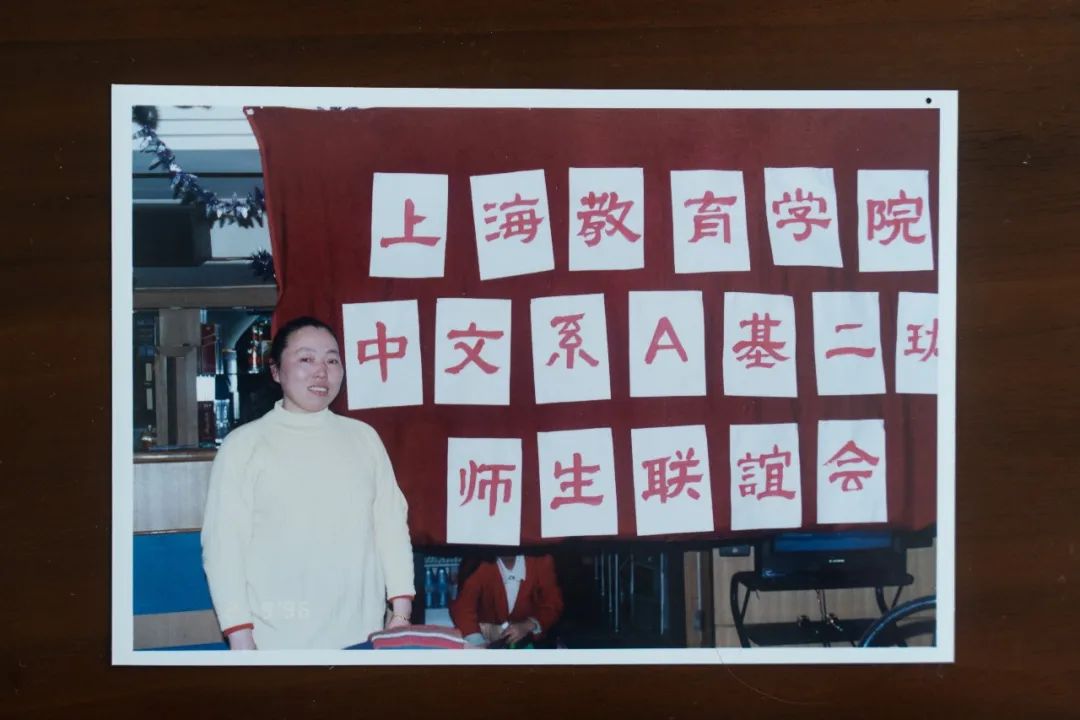 上海教育学院
中文系A基二班
师生联誼会